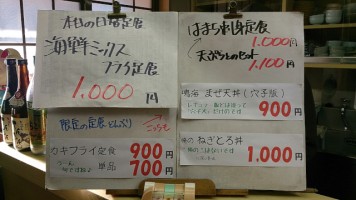 本日の日替定食
海鮮ミックス
フライ定食
1.000円
はまち刺身定食
1.000円
天ぷらとのセット
1.100円
まぜ天丼(穴子飯)
900円
限定の定食とどんぶり
こちらも
カキフライ定食 900円
単品 700円
ねぎとろ丼
1.000円